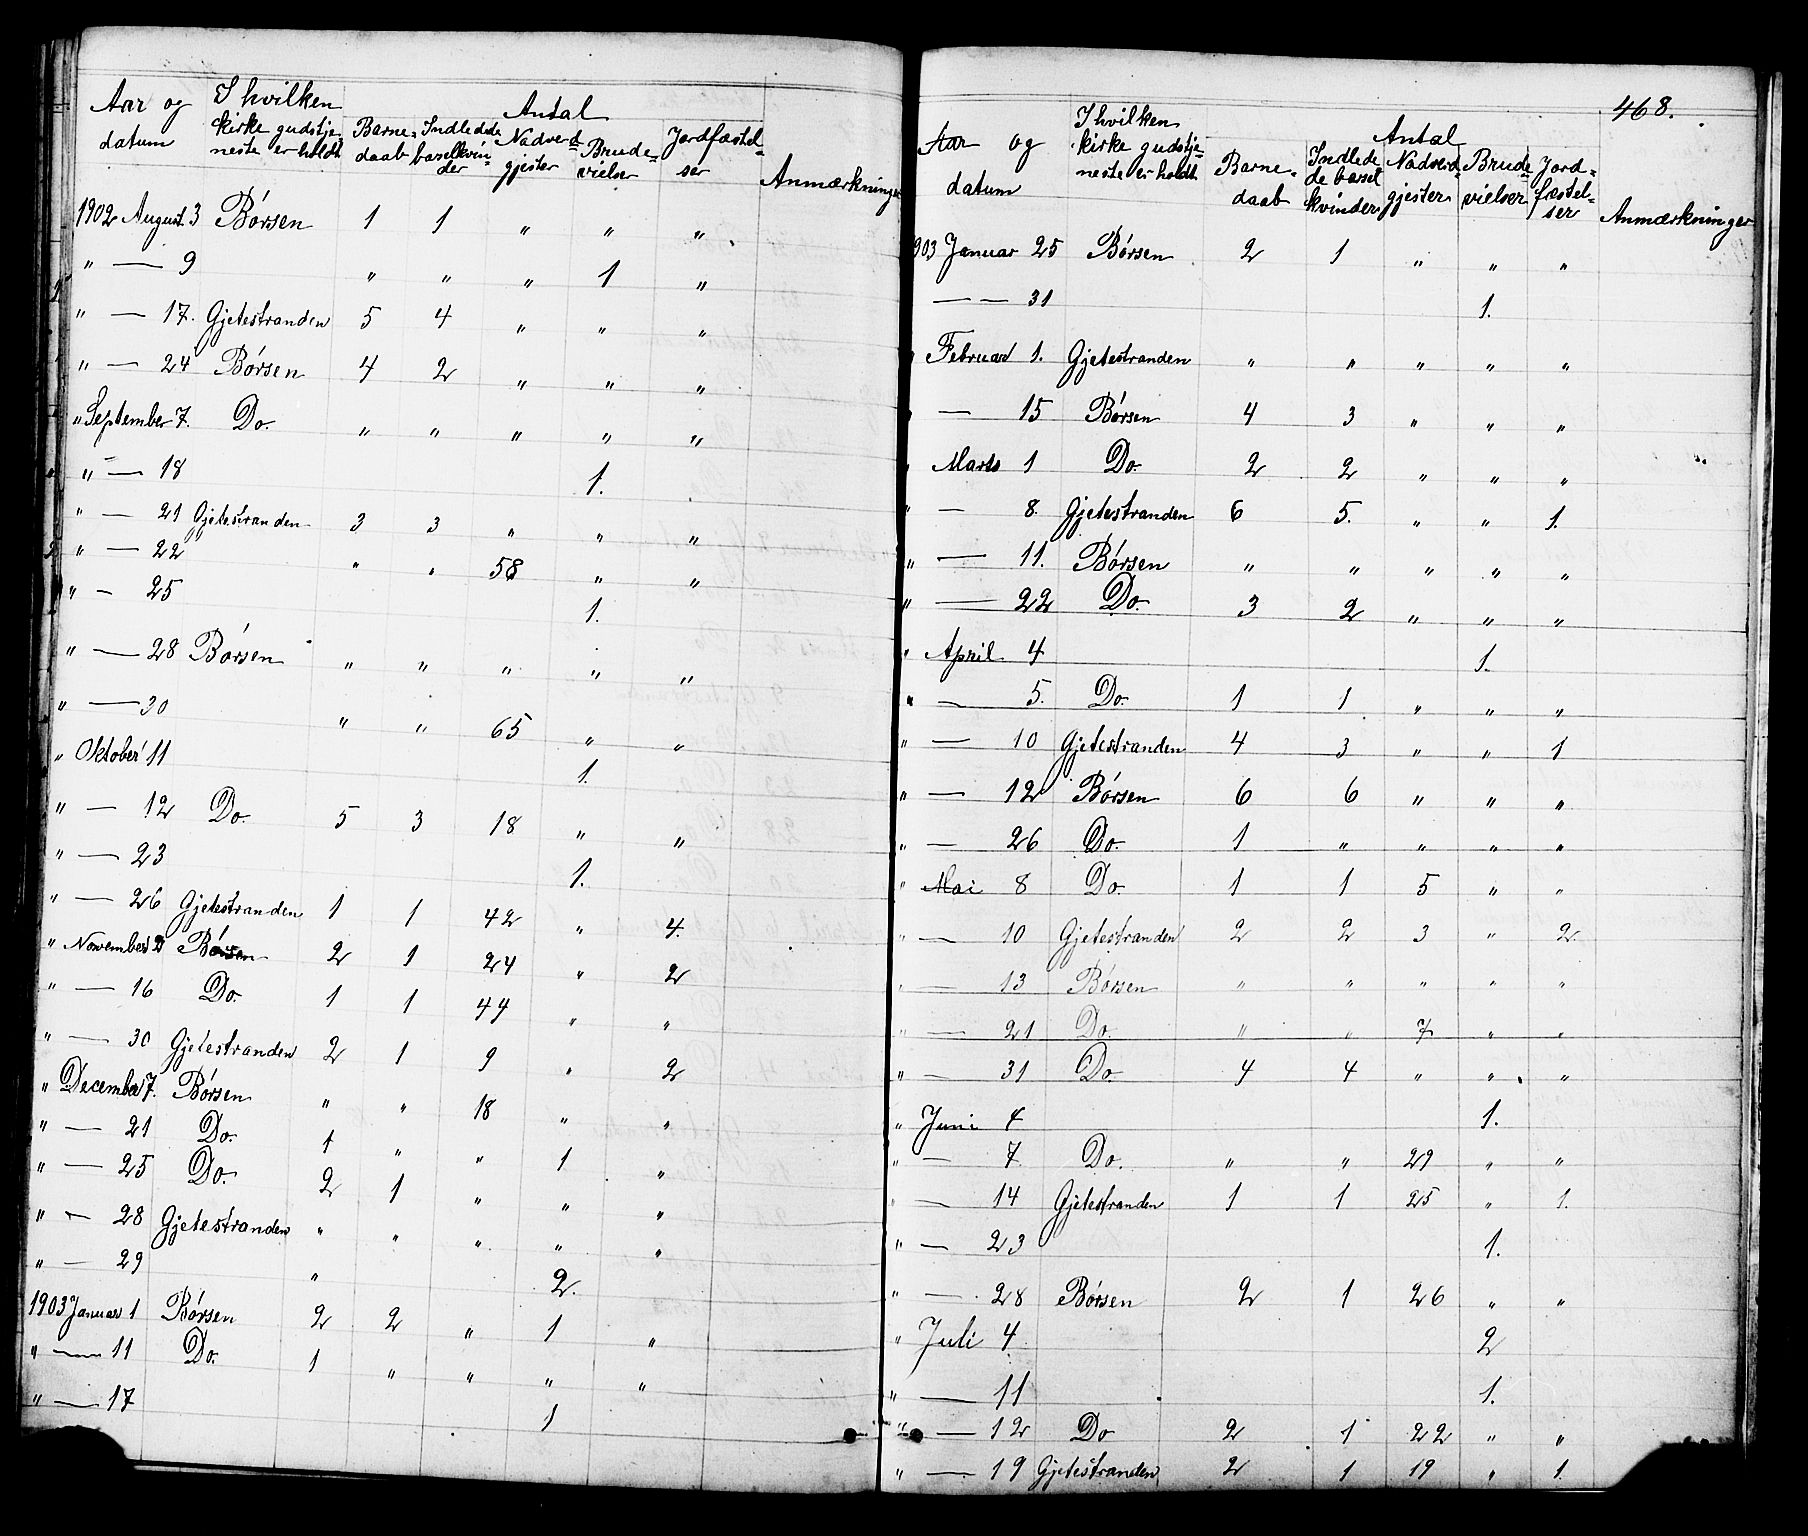 Aar og datum | I hvilken kirke gudstje- neste er holdt | Antal | Barne- daab | Indledede barselkvin- der | Nadverd- gjester | Brude- vielser | Jordfæstel- ser | Anmærkninger
1902 August 3 Børsen 1 1 " " "
" — 9 " " " 1 "
" — 17. Gjetestranden 5 4 " " "
" — 24 Børsen 4 2 " " "
" September 7. Do. " " " " "
" — 18 1.
" — 21 Gjetestranden 3 3 " " "
" — 22 " " 58 " "
" — 25 1.
" — 28 Børsen " " " " "
" — 30 " " 65 " "
" Oktober 11 1.
" — 12 Do. 5 3 18 " "
" — 23 1.
" — 26 Gjetestranden 1 1 42 " 4.
" November 2 Børsen 2 1 24 " 2
" — 16 Do. 1 1 44 " "
" — 30 Gjetestranden 2 1 9 " 2
" December 7. Børsen " " 18 " "
" — 21 Do. 1 " " 1 "
" — 25 Do. 2 1 " " "
" — 28 Gjetestranden " " " " "
" — 29 " 2.
1903 Januar 1 Børsen 2 2 " 1 "
" — 11 Do. 1 " " " "
" — 17 1
468.
Aar og datum | I hvilken kirke gudstje- neste er holdt | Antal | Barne- daab | Indlede de barsel kvinder | Nadverd- gjester | Brude- vielser | Jord- fæstel- ser | Anmærkninger
903 Januar 25 Børsen 2 1 " " "
— — 31 1.
Februar 1. Gjetestranden " " " " "
— 15 Børsen 4 3 " " "
" Marts 1 Do. 2 2 " " "
" — 8. Gjetestranden 6 5. " " 1.
" — 11. Børsen " " " " "
" — 22 Do. 3 2 " " "
" April 4 1.
" — 5. Do. 1 1 " " "
" — 10 Gjetestranden 4 3 " " 1
" — 12 Børsen 6 6 " " "
" — 26 Do. 1 " " " "
" Mai 8 Do. 1 1 5 " "
" — 10 Gjetestranden 2 2 3 " 2
" — 13 Børsen " " " " "
" — 21 Do. " " 7 " "
" — 31 Do. 4 4 " " "
" Juni 4 1.
" — 7. Do. " " 29 " "
" — 14 Gjetestranden 1 1 25 " 1.
" — 23 1.
" — 28 Børsen 2 1 26 " "
" Juli 4. 2
" — 11 1.
" — 12 Do 2 1 22 " "
" — 19 Gjetestranden 2 1 19 " 1.